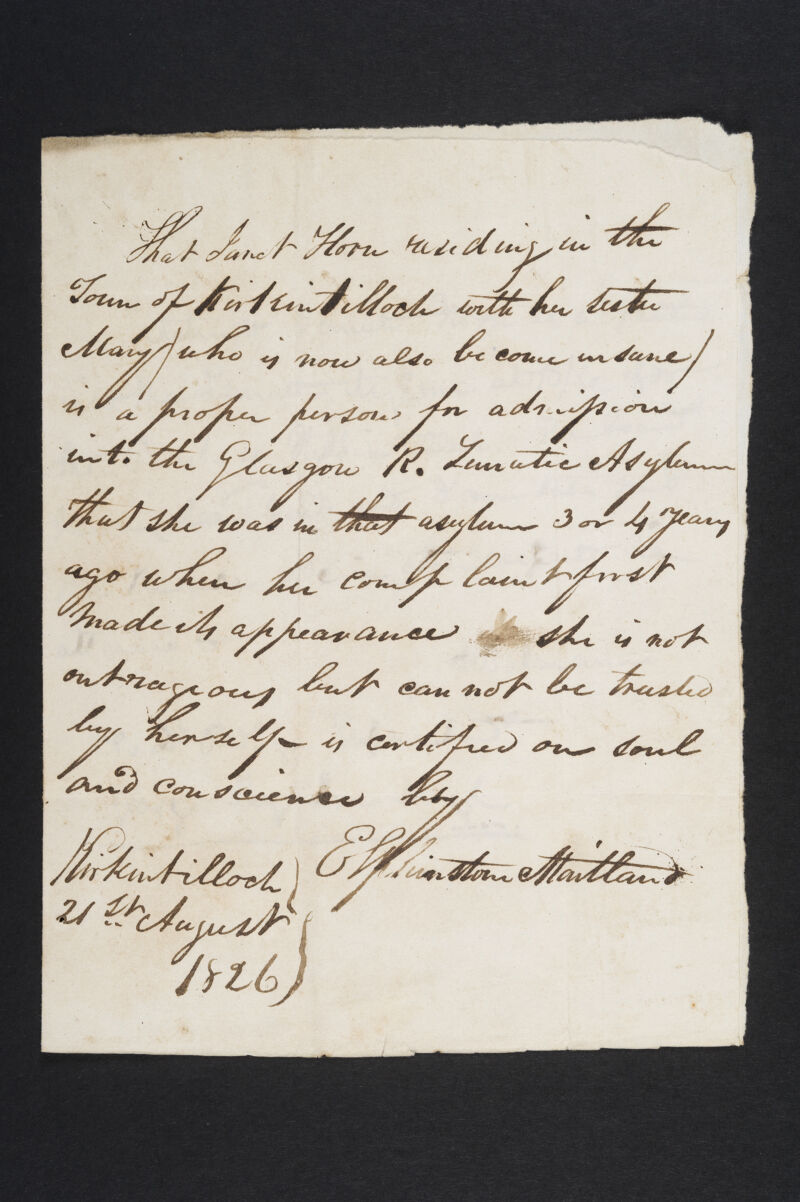 That Janet Horn residing in the
Town of Kirkintilloch with her sister
Mary (who is now also become insane)
is a proper person for admission
into the Glasgow R. Lunatic Asylum
that she was in that asylum 3 or 4 years
ago when her complaint first
made its appearance she is not
outrageous but can not be trusted
by herself – is certified on soul
and conscience by
Elphinston Maitland
Kirkintilloch
21st August
1826